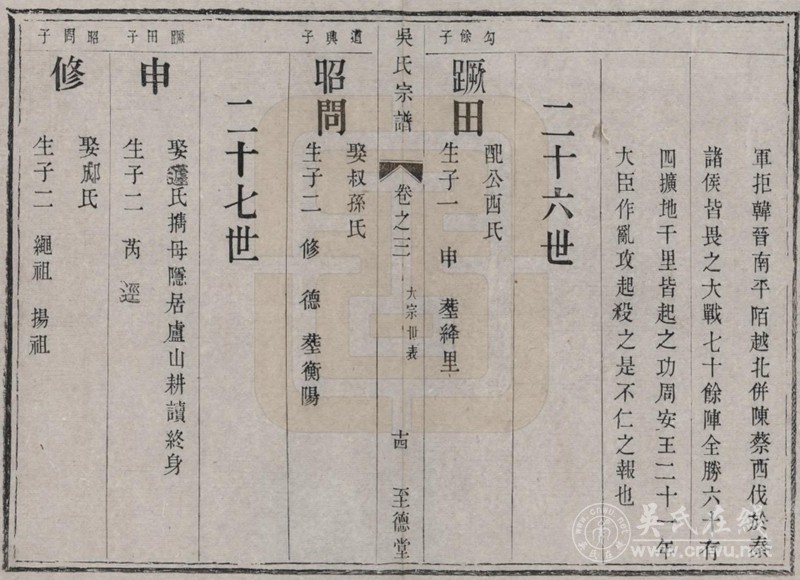 軍拒韓晉南平陌越北併陳蔡西伐於秦
諸侯皆畏之大戰七十餘陣全勝六十有
四擴地千里皆起之功周安王二十一年
大臣作亂攻起殺之是不仁之報也
二十六世
勾餘子
蹶田
配公西氏
生子一 申 塟絳里
吳氏宗譜 卷之三 大宗世表 十四 至德堂
道興子
昭問
娶叔孫氏
生子二 修 德 塟衡陽
二十七世
蹶田子
申
娶蘧氏擕母隱居廬山耕讀終身
生子二 芮 逕
昭問子
修
娶邸氏
生子二 繩祖 揚祖
吳氏在線
www.cnwu.net